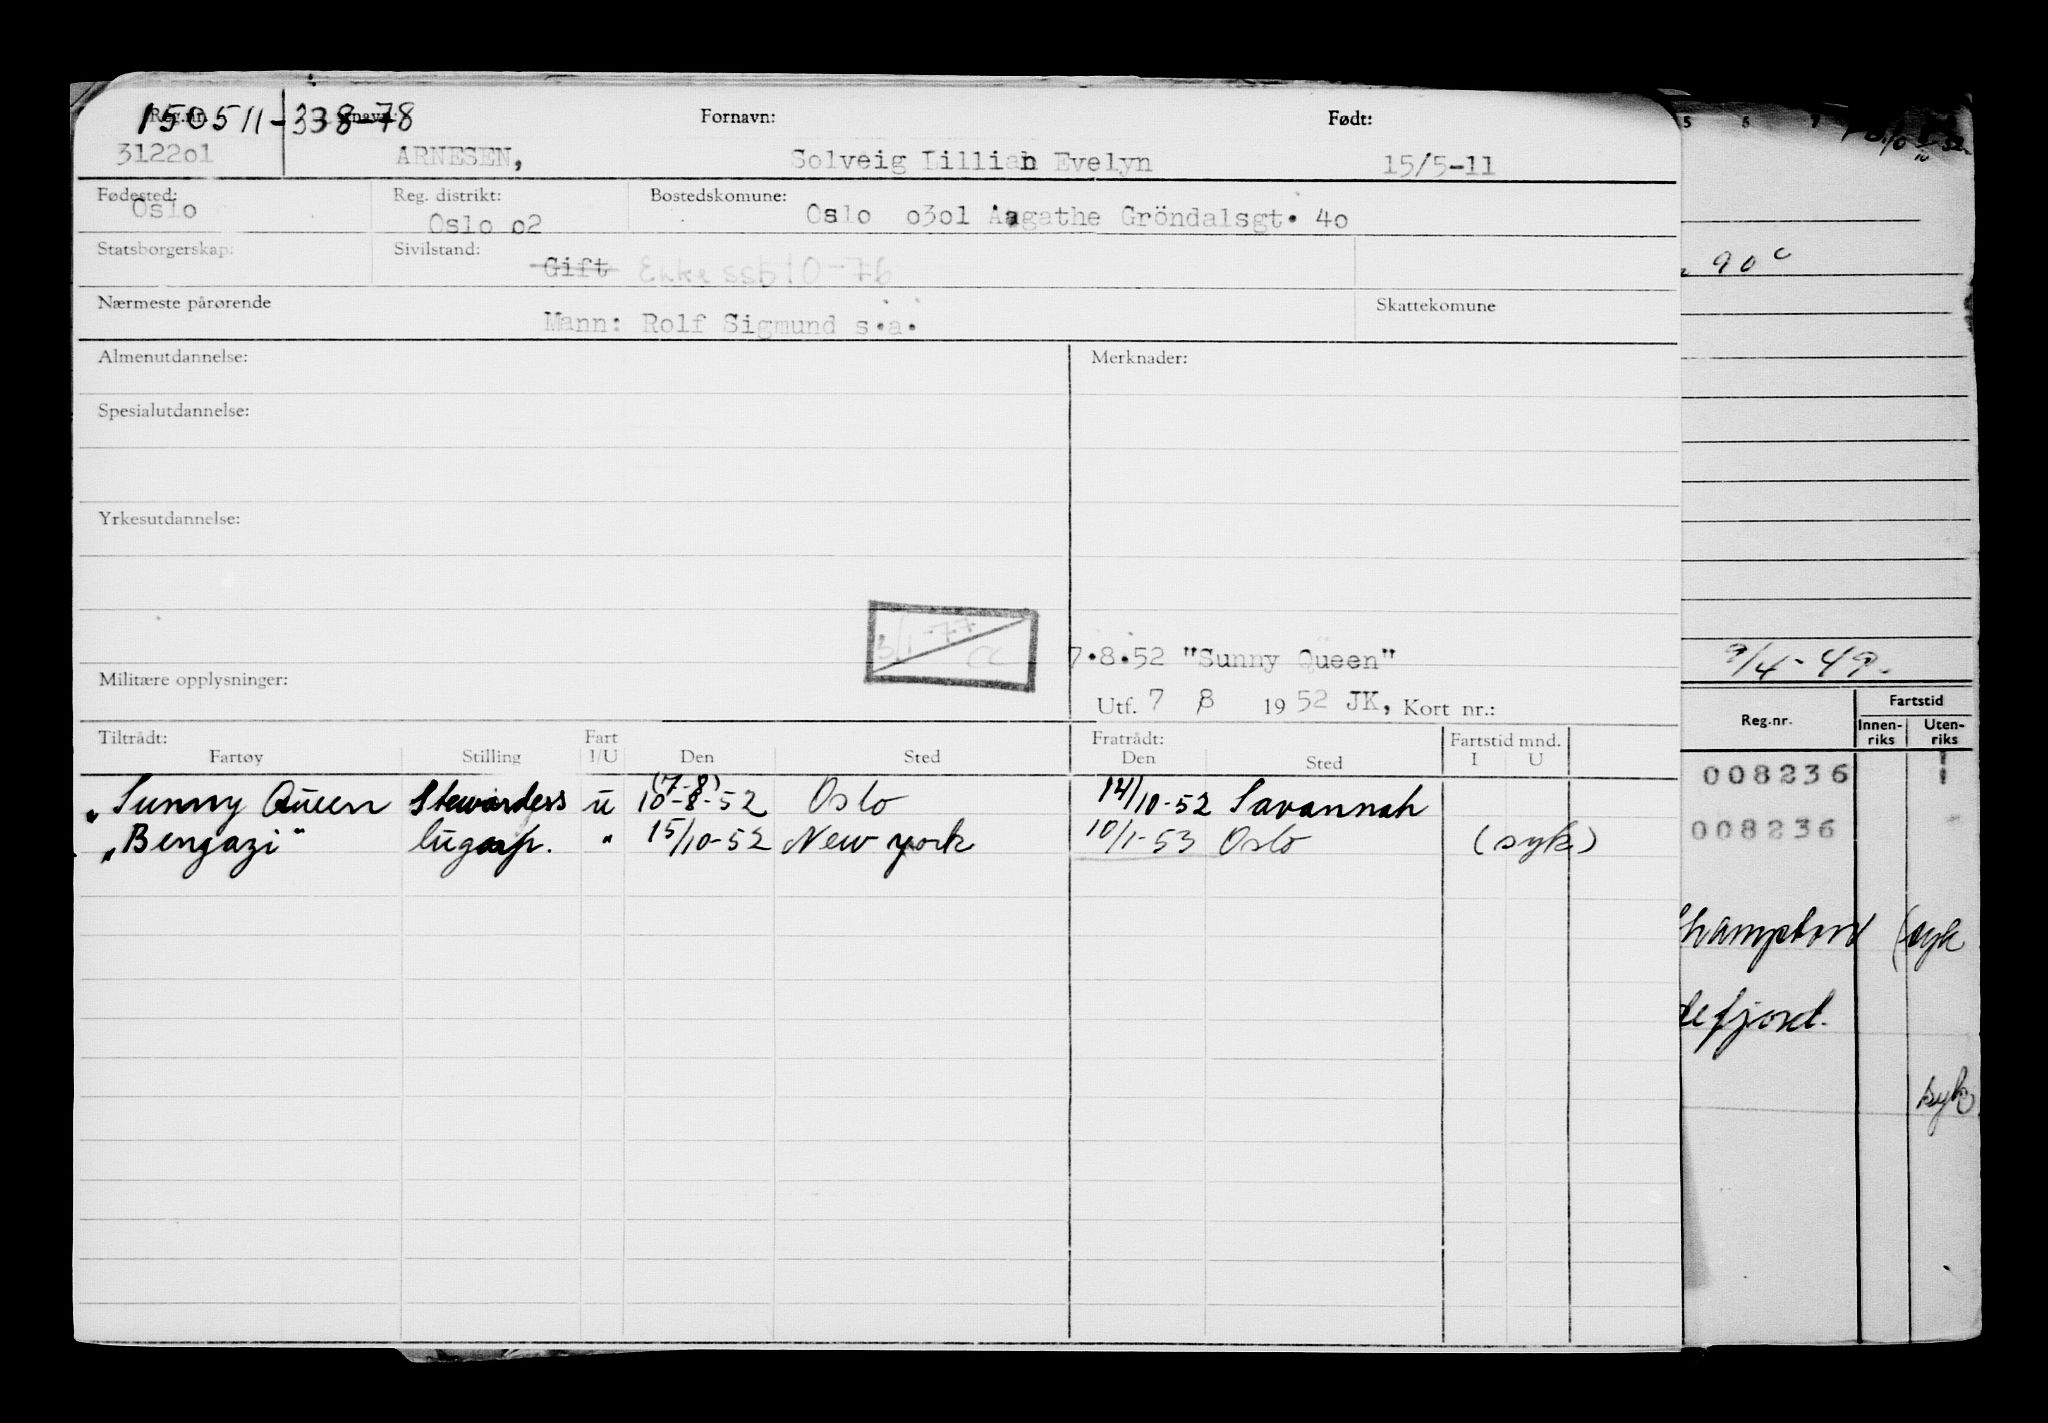 150511-338-78
Reg.nr. Fornavn: Født:
312201 ARNESEN, Solveig Lillian Evelyn 15/5-11
Fødested: Reg. distrikt: Bostedskomune:
Oslo Oslo o2 Oslo o3o1 Aagathe Gröndalsgt. 4o
Statsborgerskap: Sivilstand:
Gift Enke ssb10-76
Nærmeste pårørende Skattekomune
Mann: Rolf Sigmund s.a.
Almenutdannelse: Merknader:
Spesialutdannelse:
Yrkesutdannelse:
3/1-77
7.8.52 "Sunny Queen"
Militære opplysninger:
Utf. 7 8 1952 JK, Kort nr.:
Tiltrådt: Fart Fratrådt: Fartstid mnd.
Fartøy Stilling I/U Den Sted Den Sted I U
(7-8)
"Sunny Queen Stewardess u 10-8-52 Oslo 14/10-52 Savannah
"Bengazi" lugarp. " 15/10-52 New york 10/1-53 Oslo (syk)
5 6 7
90c
9/4-49.
Reg.nr. Fartstid
Innen-riks Uten-riks
008236
008236
hampton (syk
defjord.
syk